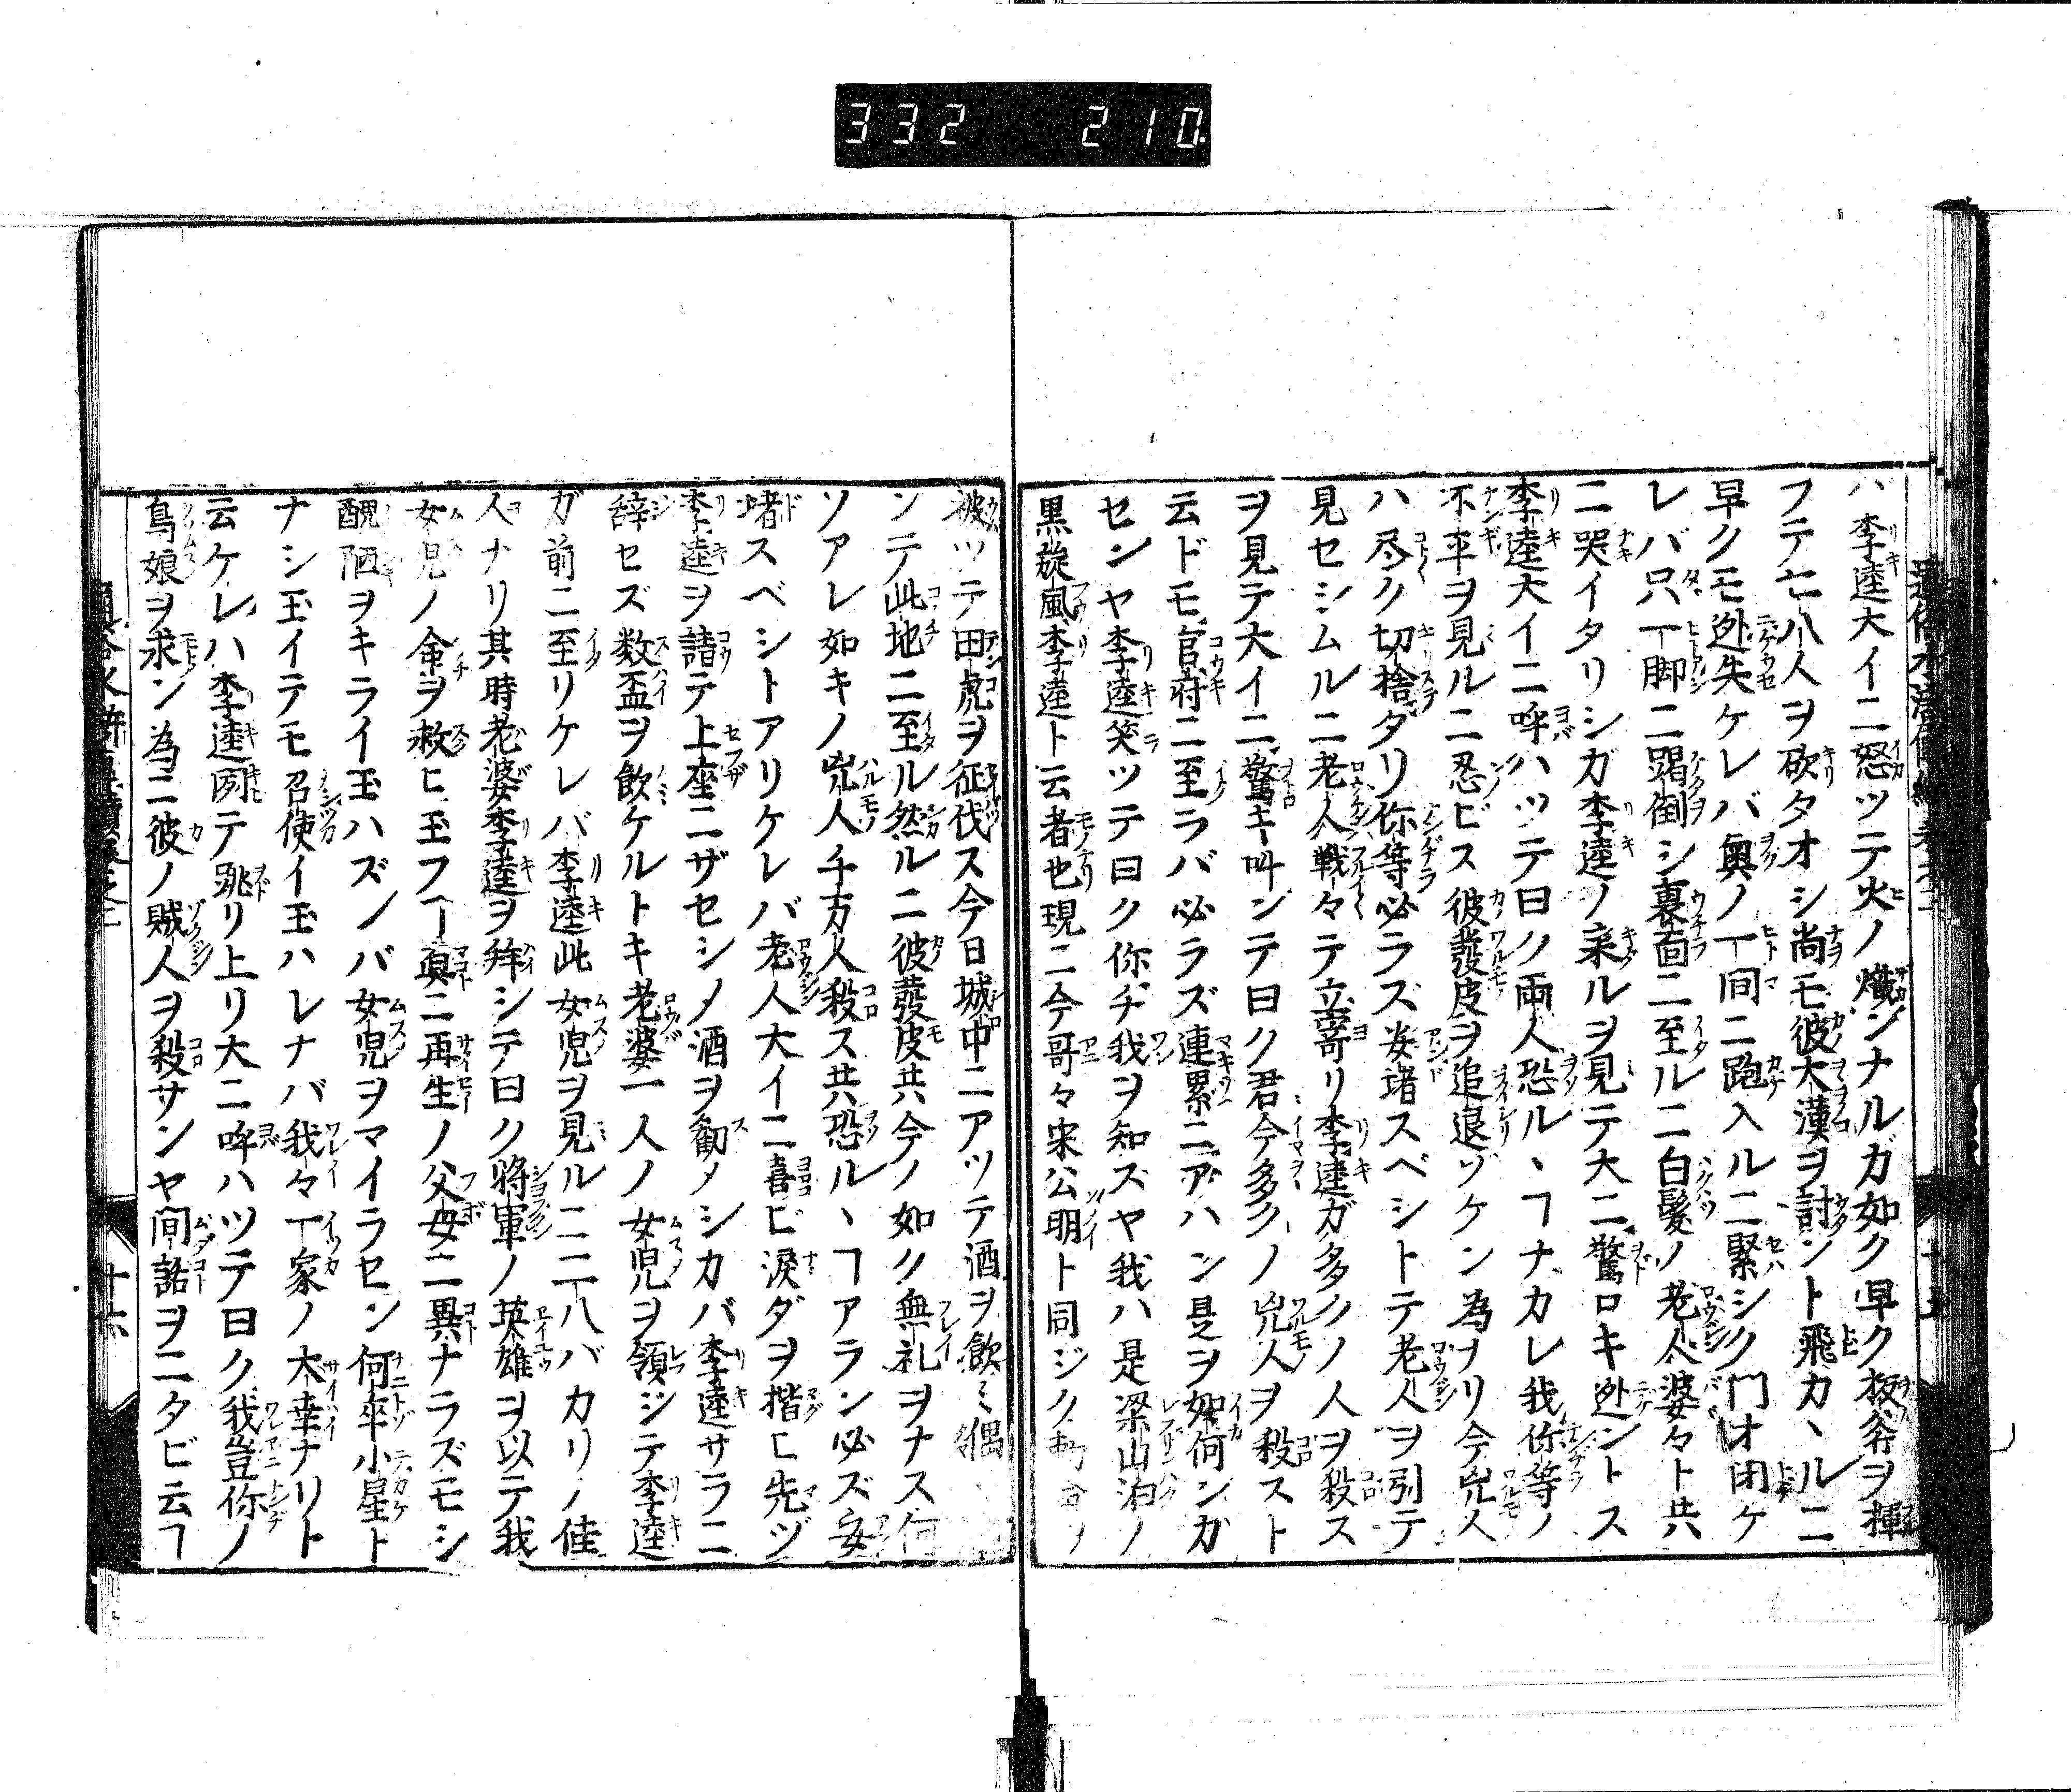 332 210.
ハ李逵大イニ怒ツテ火ノ熾ンナルガ如ク早ク板斧ヲ揮
フテ七八人ヲ砍タオシ尚モ彼大漢ヲ討ント飛カヽルニ
早クモ迯失ケレバ奥ノ一間ニ跑入ルニ緊シク門オ閉ケ
レバ只一脚ニ踢倒シ裏面ニ至ルニ白髪ノ老人婆々ト共
ニ哭イタリシガ李逵ノ来ルヲ見テ大ニ驚ロキ迯ントス
李逵大イニ呼ハツテ曰ク両人恐ルヽヿナカレ我你等ノ
不平ヲ見ルニ忍ビス彼發皮ヲ追退ゾケン為ナリ今兇人
ハ尽ク切捨タリ你等必ラズ安堵スベシトテ老人ヲ引テ
見セシムルニ老人戦々テ立寄リ李逵ガ多クノ人ヲ殺ス
ヲ見テ大イニ驚キ叫ンテ曰ク君今多クノ兇人ヲ殺スト
云ドモ官府ニ至ラバ必ラズ連累ニアハン是ヲ如何ンガ
センヤ李逵笑ツテ曰ク你ヂ我ヲ知ズヤ我ハ是梁山泊ノ
黒旋風李逵ト云者也現ニ今哥々宋公明ト同ジク
ツテ田虎ヲ征伐ス今日城中ニアツテ酒ヲ飲ミ偶
ンテ此地ニ至ル然ルニ彼發皮共今ノ如ク無礼ヲナス何
ソアレ如キノ兇人千万人殺ス共恐ルヽヿアラン必ズ安
堵スベシトアリケレバ老人大イニ喜ビ涙ダヲ揩ヒ先ヅ
李逵ヲ請テ上座ニザセシメ酒ヲ勧メシカバ李逵サラニ
辞セズ数盃ヲ飲ケルトキ老婆一人ノ女児ヲ領シテ李逵
ガ前ニ至リケレバ李逵此女児ヲ見ルニ二八バカリノ佳
人ナリ其時老婆李逵ヲ拜シテ曰ク將軍ノ英雄ヲ以テ我
女児ノ命ヲ救ヒ玉フヿ真ニ再生ノ父母ニ異ナラズモシ
醜陋ヲキライ玉ハズンバ女児ヲマイラセン何卒小星ト
ナシ玉イテモ召使イ玉ハレナバ我々一家ノ大幸ナリト
云ケレハ李逵聞テ跳リ上リ大ニ呼ハツテ曰ク我豈你ノ
鳥娘ヲ求ン為ニ彼ノ賊人ヲ殺サンヤ間話ヲニタビ云ヿ
十六